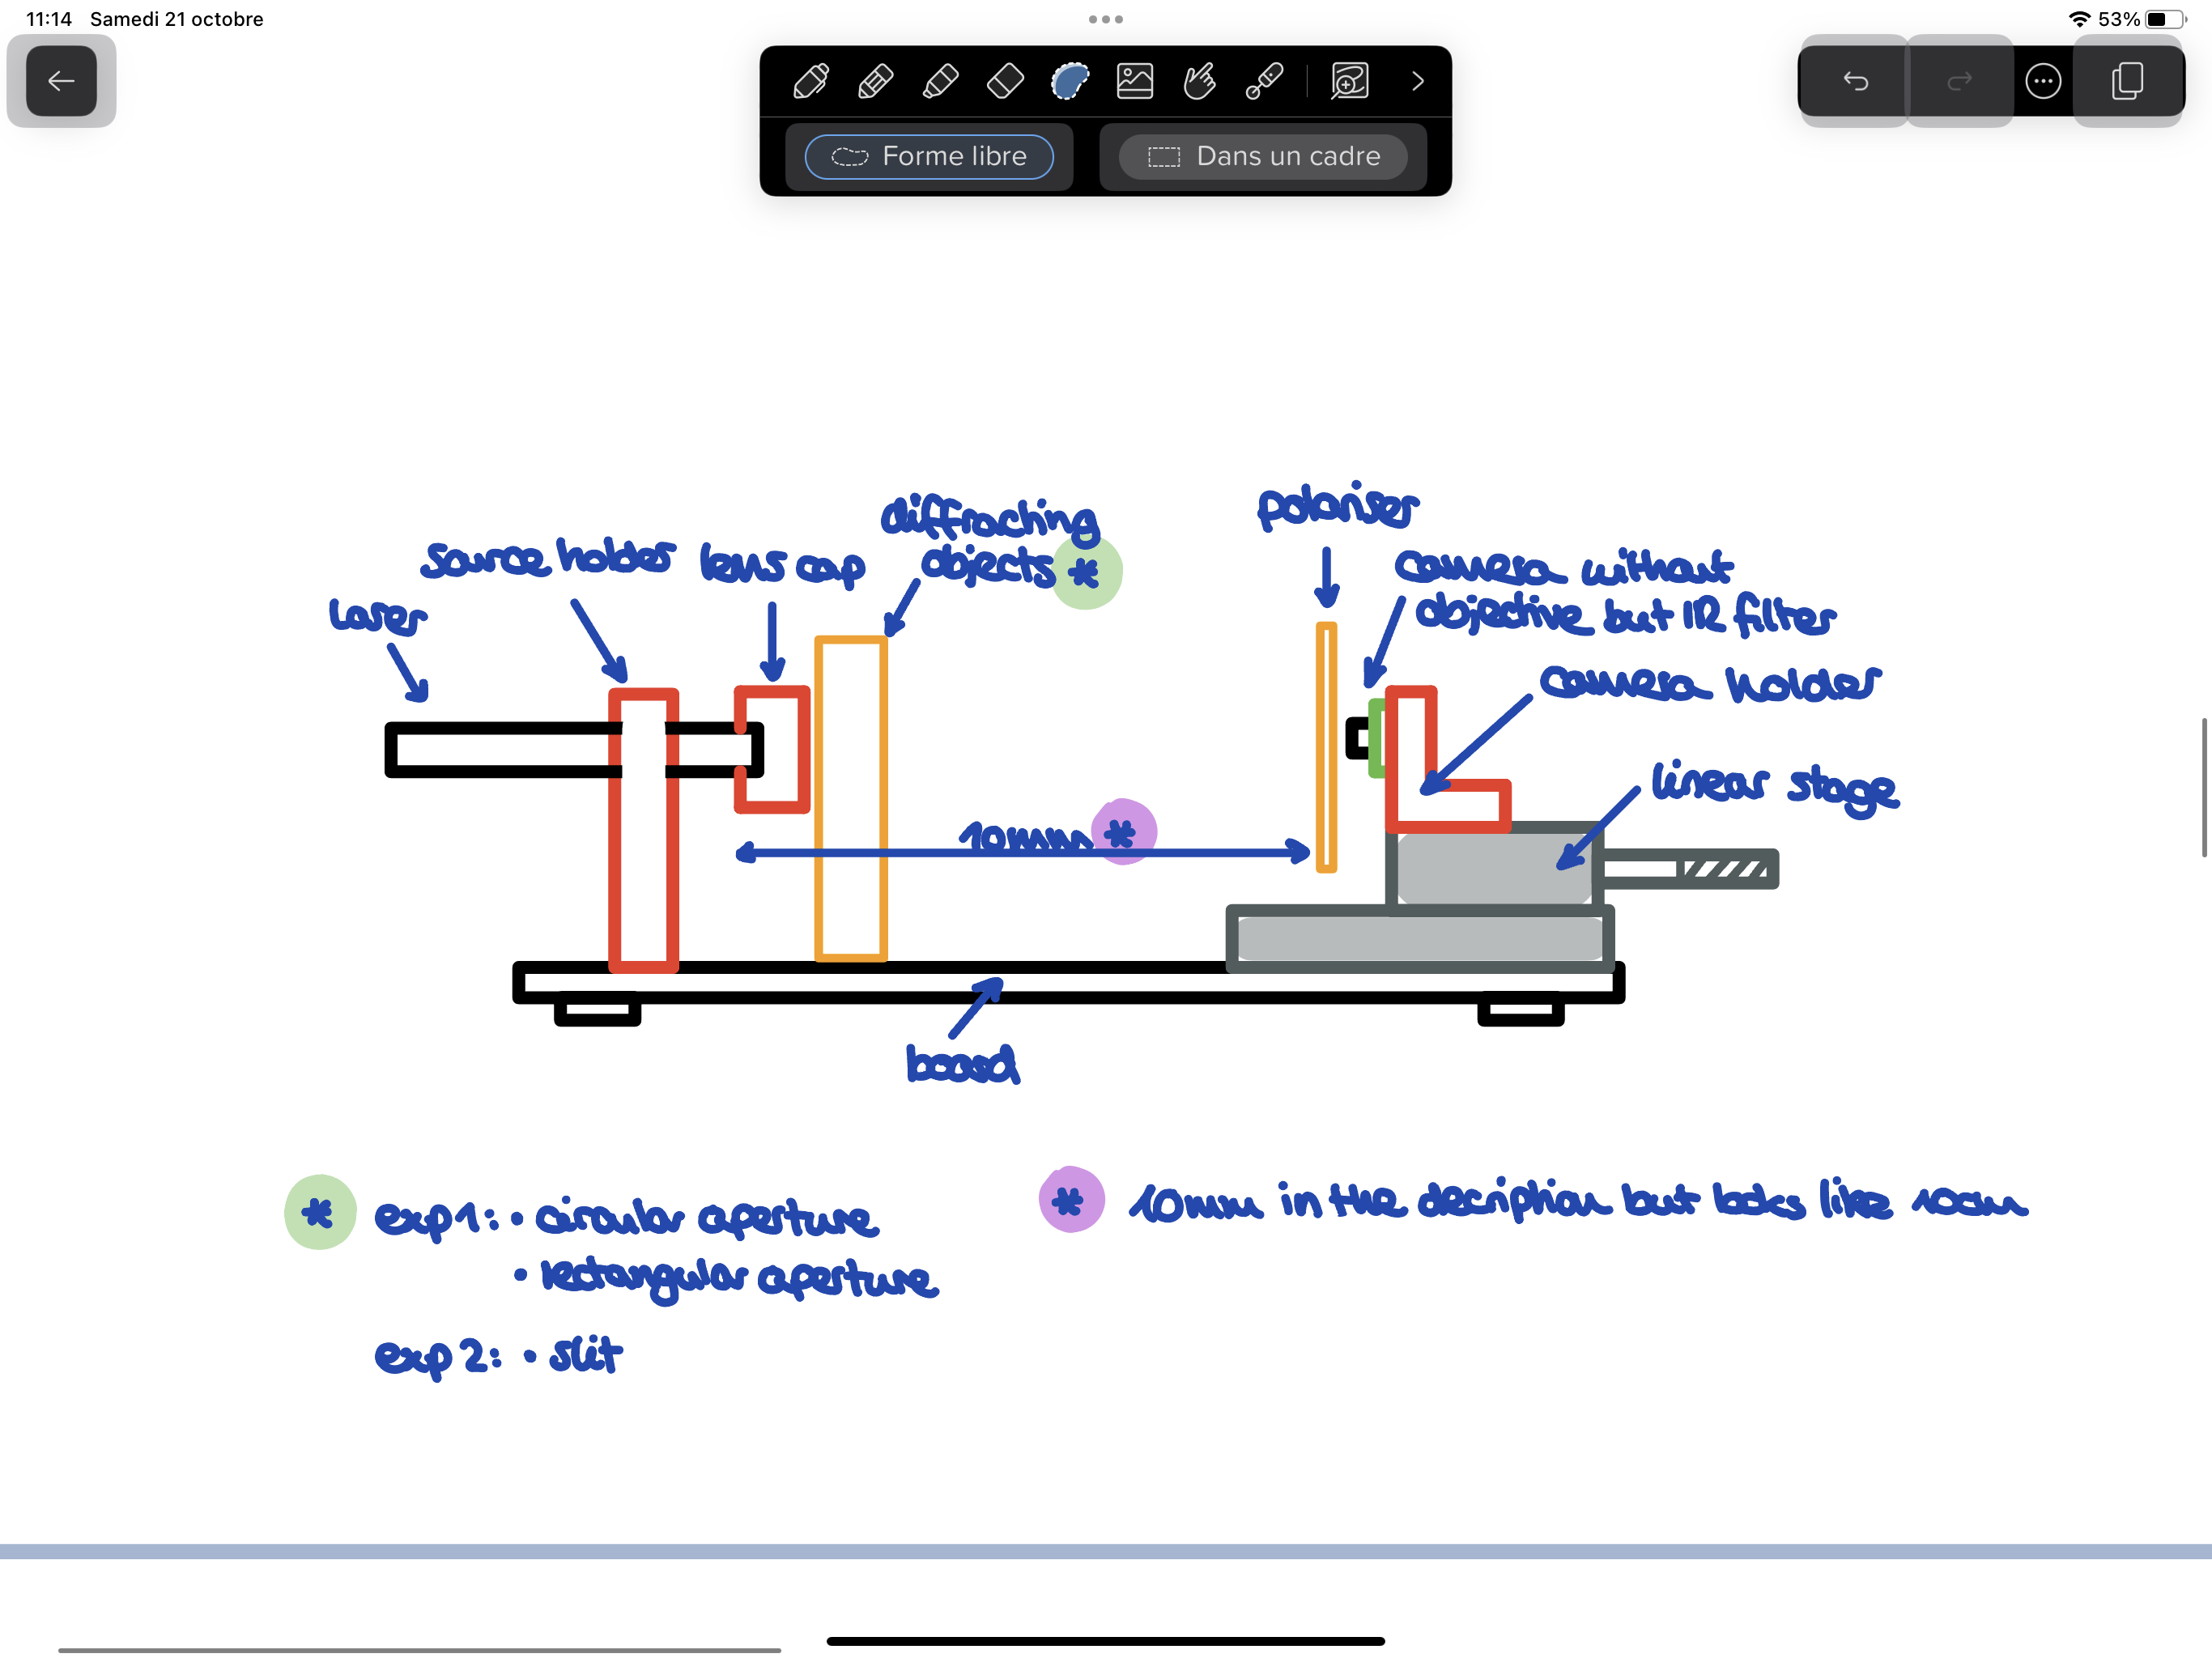 11:14 Samedi 21 octobre
53%
Forme libre
Dans un cadre
diffracting
objects *
polariser
source holder
lens cap
camera without
objective but IR filter
laser
camera holder
linear stage
10mm *
board
* exp 1: • circular aperture
• rectangular aperture
exp 2: • slit
* 10mm in the decription but looks like 10cm